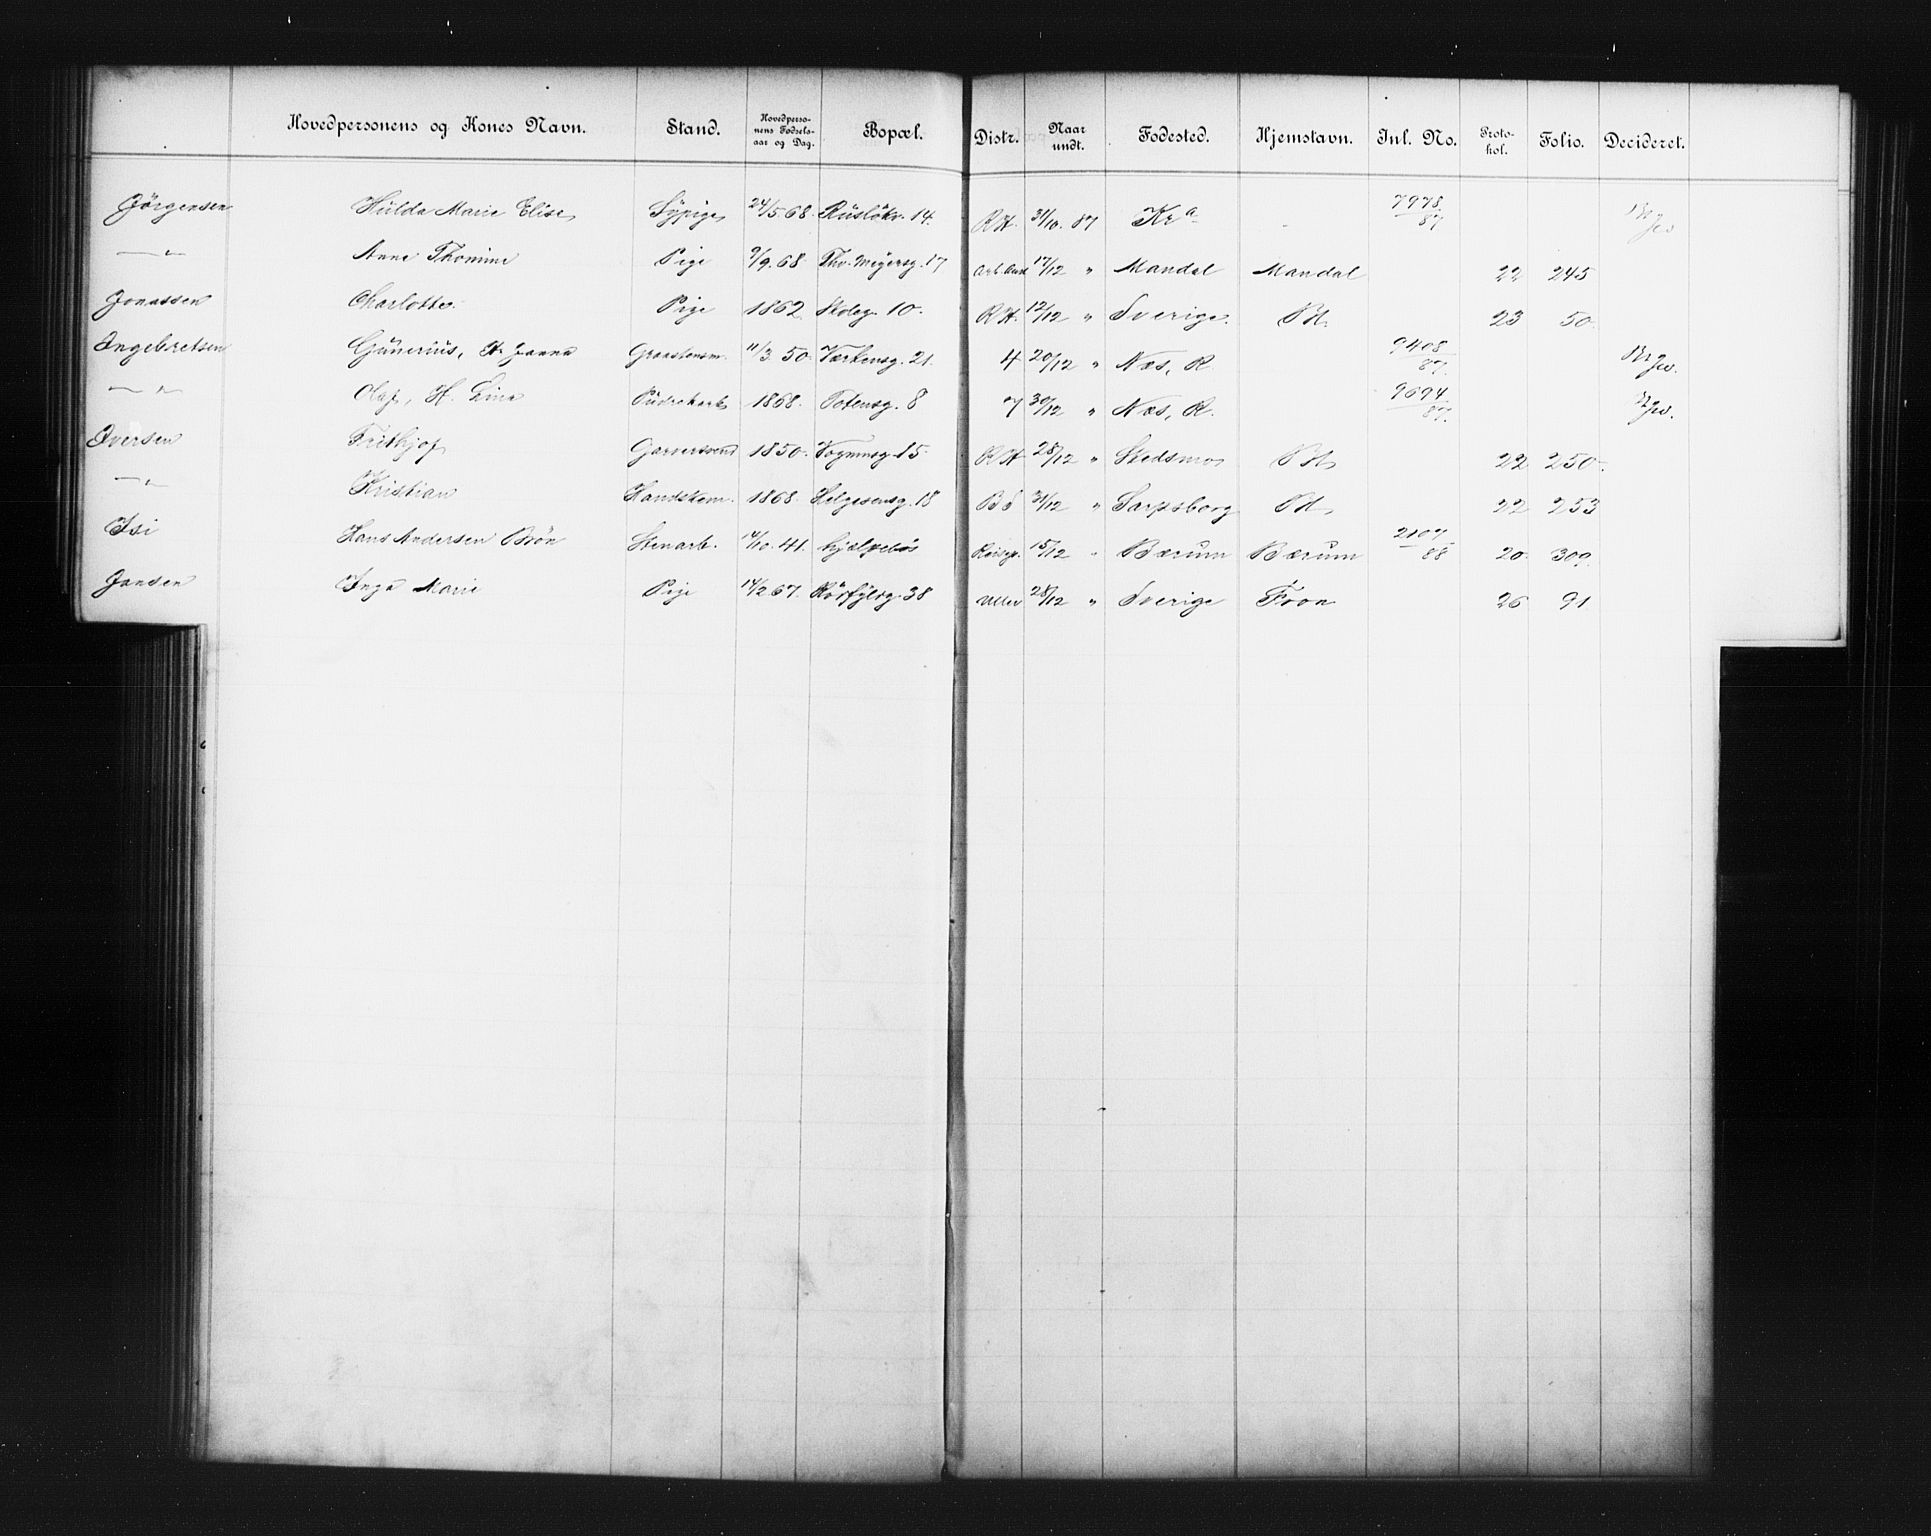 Hovedpersonens og Kones Navn. Stand. Hovedperso-nens Fødsels-aar og Dag. Bopæl. Distr. Naar undt. Fødested. Hjemstavn. Inl. No. Proto-kol. Folio. Decideret.
Jørgensen Hulda Marie Elise Sypige 24/5 68. Rusløkv. 14. R.H. 31/10. 87 Kra 7978/87
—„— Anne Thomine Pige 9/9. 68. Thv. Meyersg. 17 17/12 „ Mandal Mandal 22 245
Jonassen Charlotte. Pige 1862 Skoleg. 10. R.H. 12/12 „ Sverige. 23 50.
Ingebretsen Gunerius, H. Janna 11/3 50. Værkensg. 21. 4 20/12 „ Næs, R. 9408/87.
—„— Olaf, H. Lina 1868. Totensg. 8 7 30/12 „ Næs, R. 9694/87.
Iversen Frithjof Garversvend 1850. Vognmsg. 15. R.H 28/12 „ Skedsmo 22 250.
—„— Kristian Handskem. 1868. Helgesensg. 18 31/12 „ Sarpsborg 22 253
Isi Hans Andersen Brøn Stenarb. 14/10. 41. hjælpeløs 15/12 „ Bærum Bærum 2107/88 20. 309.
Jansen Inga Marie Pige 14/2 67. Rørfylsg. 38 Ullev 28/12 „ Sverige 26 91